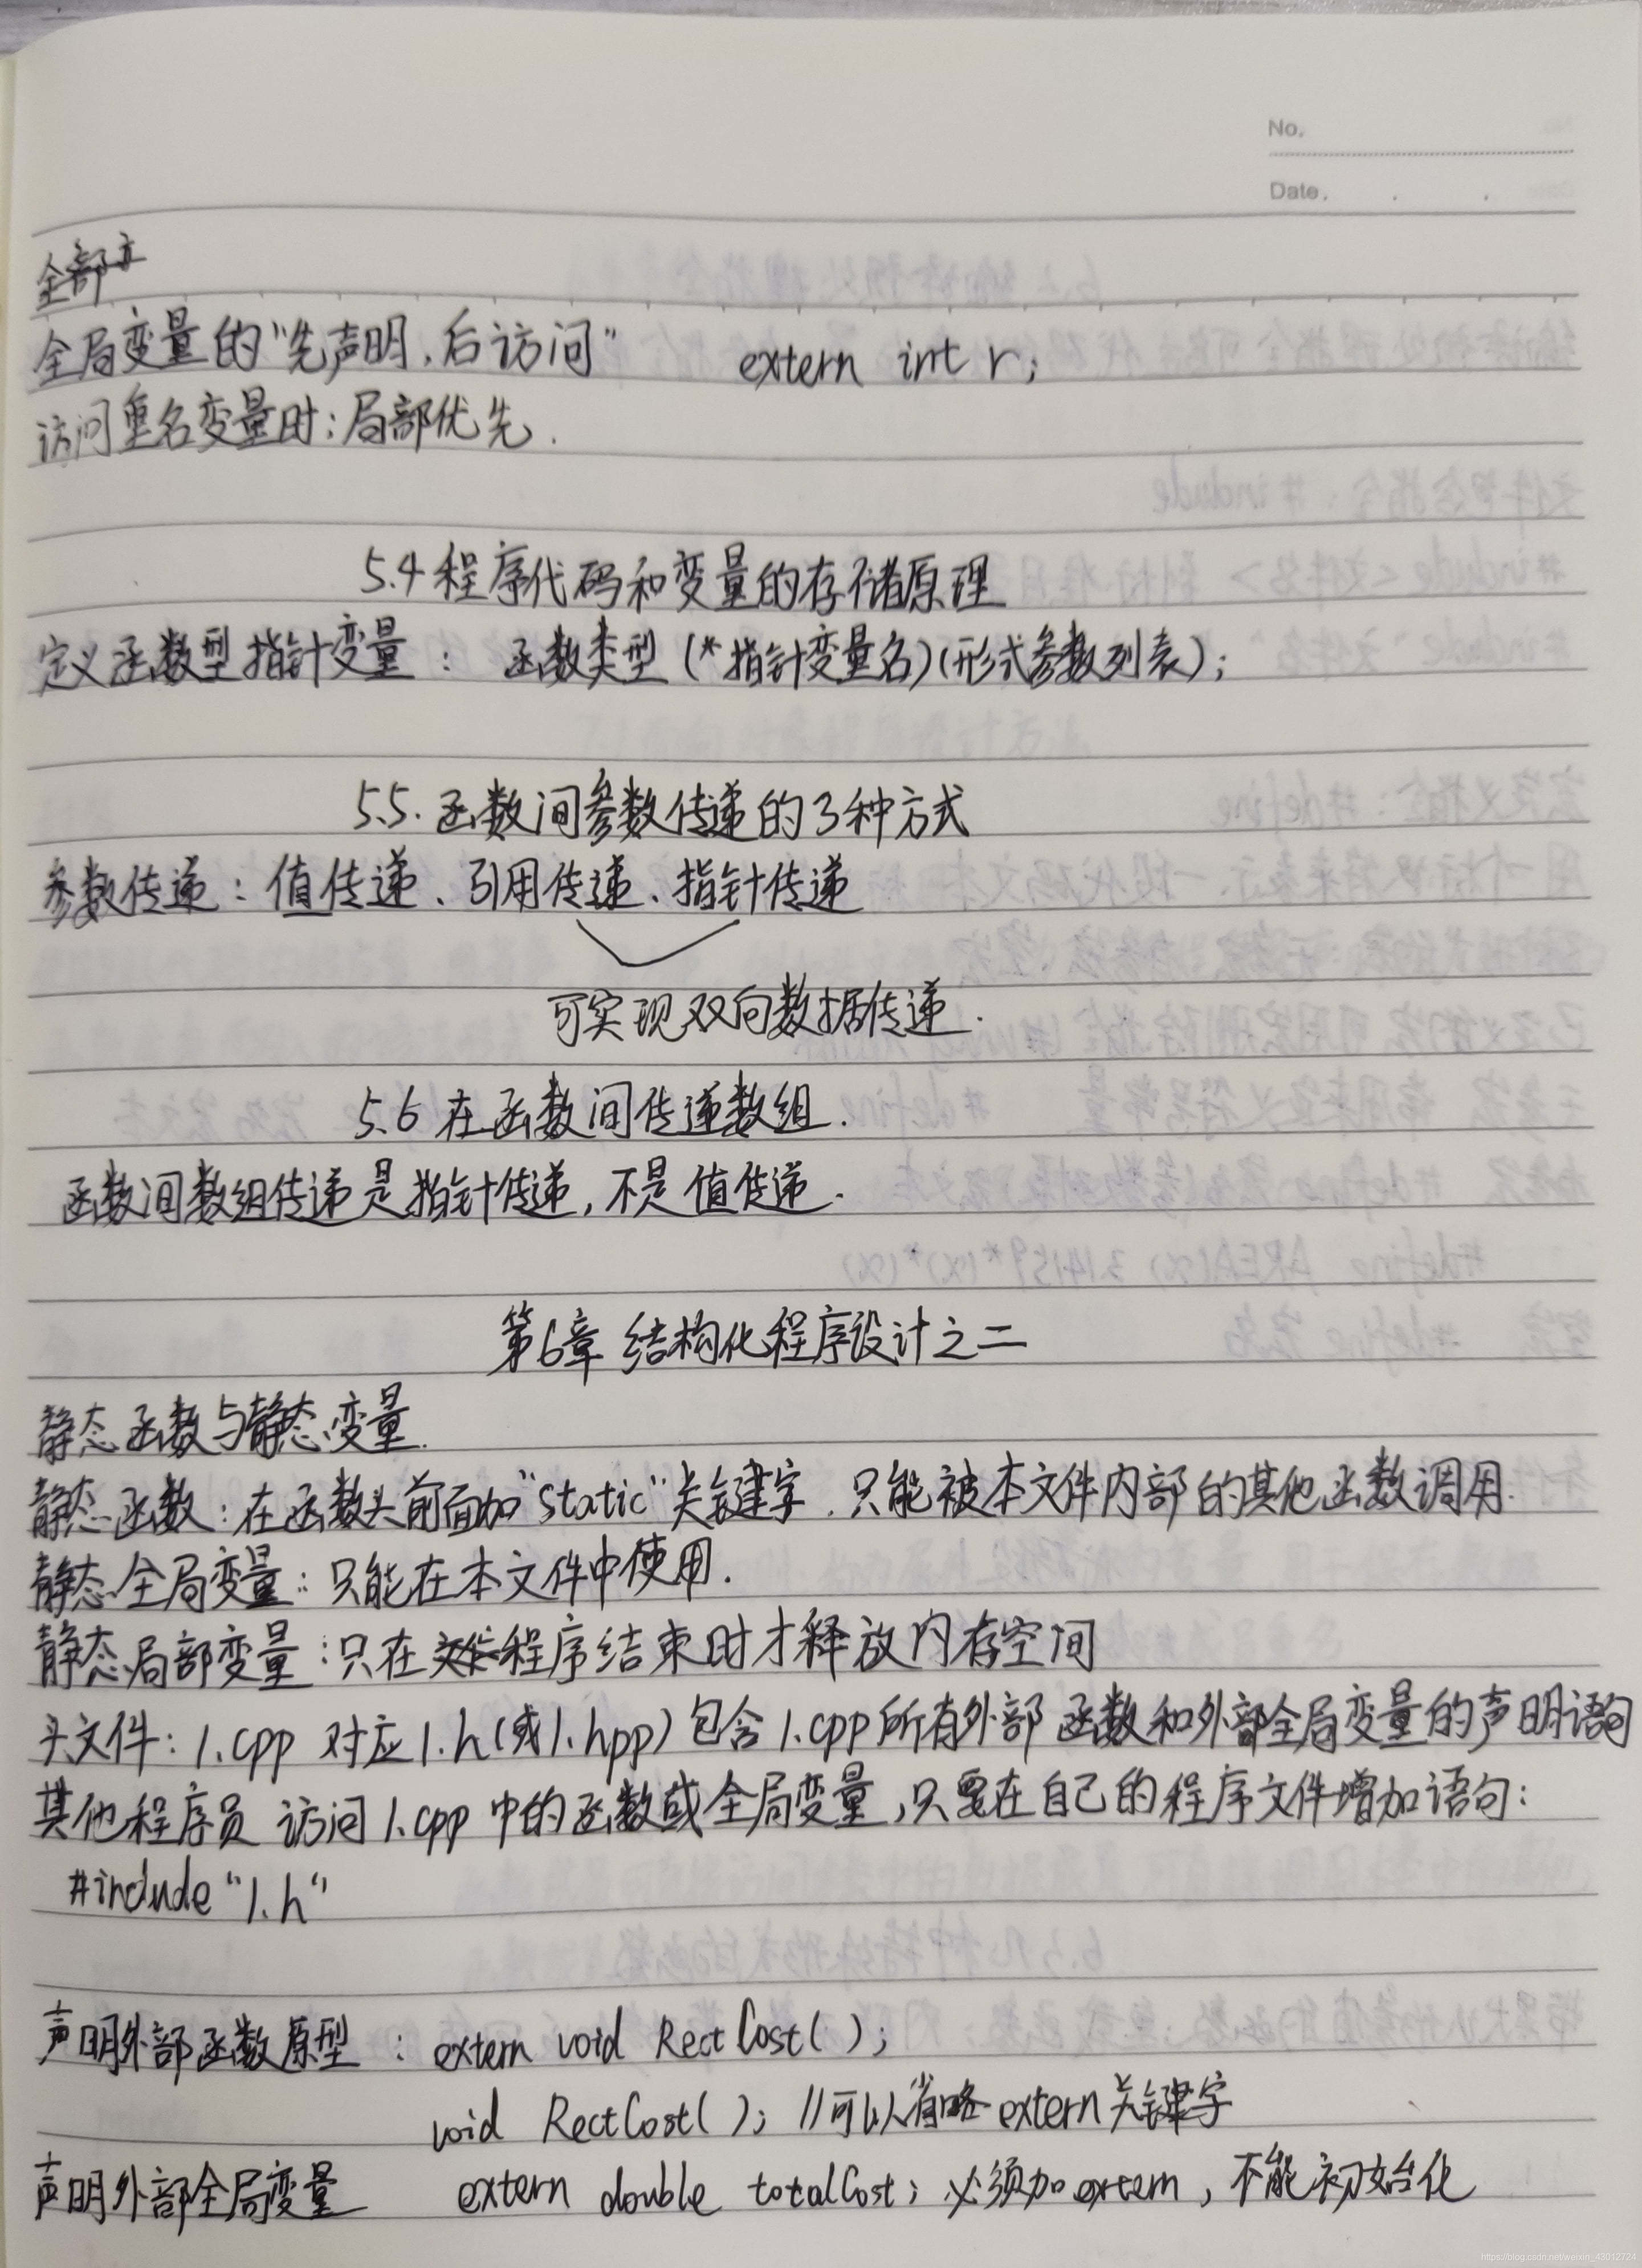 No.
Date.
全部
全局变量的"先声明,后访问" extern int r;
访问重名变量时:局部优先.
5.4 程序代码和变量的存储原理
定义函数型指针变量: 函数类型(*指针变量名)(形式参数列表);
5.5. 函数间参数传递的3种方式
参数传递:值传递、引用传递、指针传递
可实现双向数据传递.
5.6 在函数间传递数组.
函数间数组传递是指针传递,不是值传递.
第6章 结构化程序设计之二
静态函数与静态变量.
静态函数:在函数头前面加"static"关键字.只能被本文件内部的其他函数调用.
静态全局变量:只能在本文件中使用.
静态局部变量:只在程序结束时才释放内存空间
头文件:1.cpp 对应1.h(或1.hpp)包含1.cpp所有外部函数和外部全局变量的声明语句
其他程序员 访问1.cpp中的函数或全局变量,只要在自己的程序文件增加语句:
#include "1.h"
声明外部函数原型: extern void RectCost( );
void RectCost( ); //可以省略extern关键字
声明外部全局变量 extern double totalCost; 必须加extern,不能初始化
https://blog.csdn.net/weixin_48012724